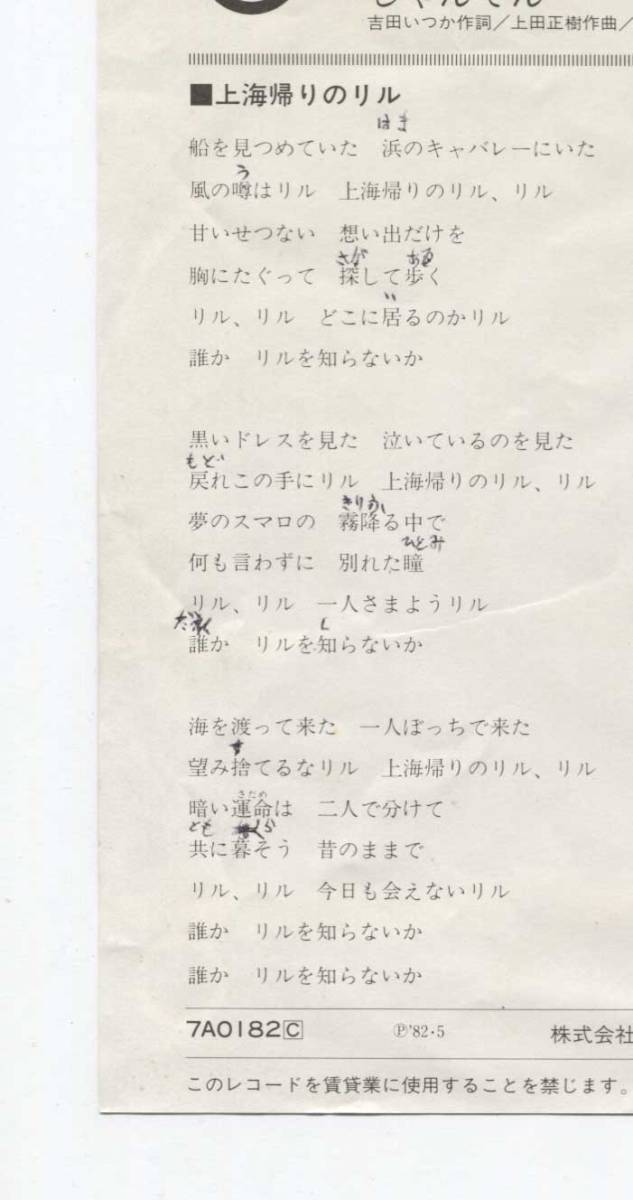 吉田いつか作詞／上田正樹作曲／
■上海帰りのリル
はま
船を見つめていた　浜のキャバレーにいた
う
風の噂はリル　上海帰りのリル、リル
甘いせつない　想い出だけを
さが　ある
胸にたぐって　探して歩く
い
リル、リル　どこに居るのかリル
誰か　リルを知らないか
黒いドレスを見た　泣いているのを見た
もど
戻れこの手にリル　上海帰りのリル、リル
きりふ
夢のスマロの　霧降る中で
ひとみ
何も言わずに　別れた瞳
リル、リル　一人さまようリル
し
誰か　リルを知らないか
海を渡って来た　一人ぼっちで来た
す
望み捨てるなリル　上海帰りのリル、リル
さだめ
暗い運命は　二人で分けて
とも　くら
共に暮そう　昔のままで
リル、リル　今日も会えないリル
誰か　リルを知らないか
誰か　リルを知らないか
7A0182C　Ⓟ'82・5　株式会社
このレコードを賃貸業に使用することを禁じます。